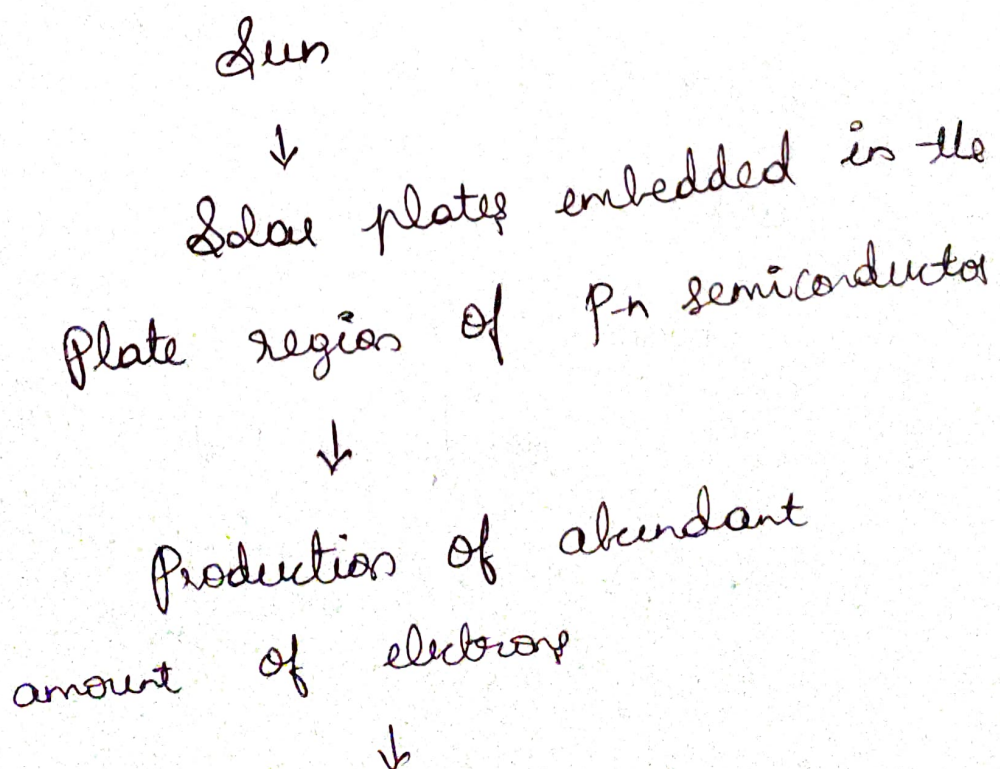 Sun
↓
Solar plates embedded in the
Plate region of P-n semiconductor
↓
Production of abundant
amount of electrons
↓